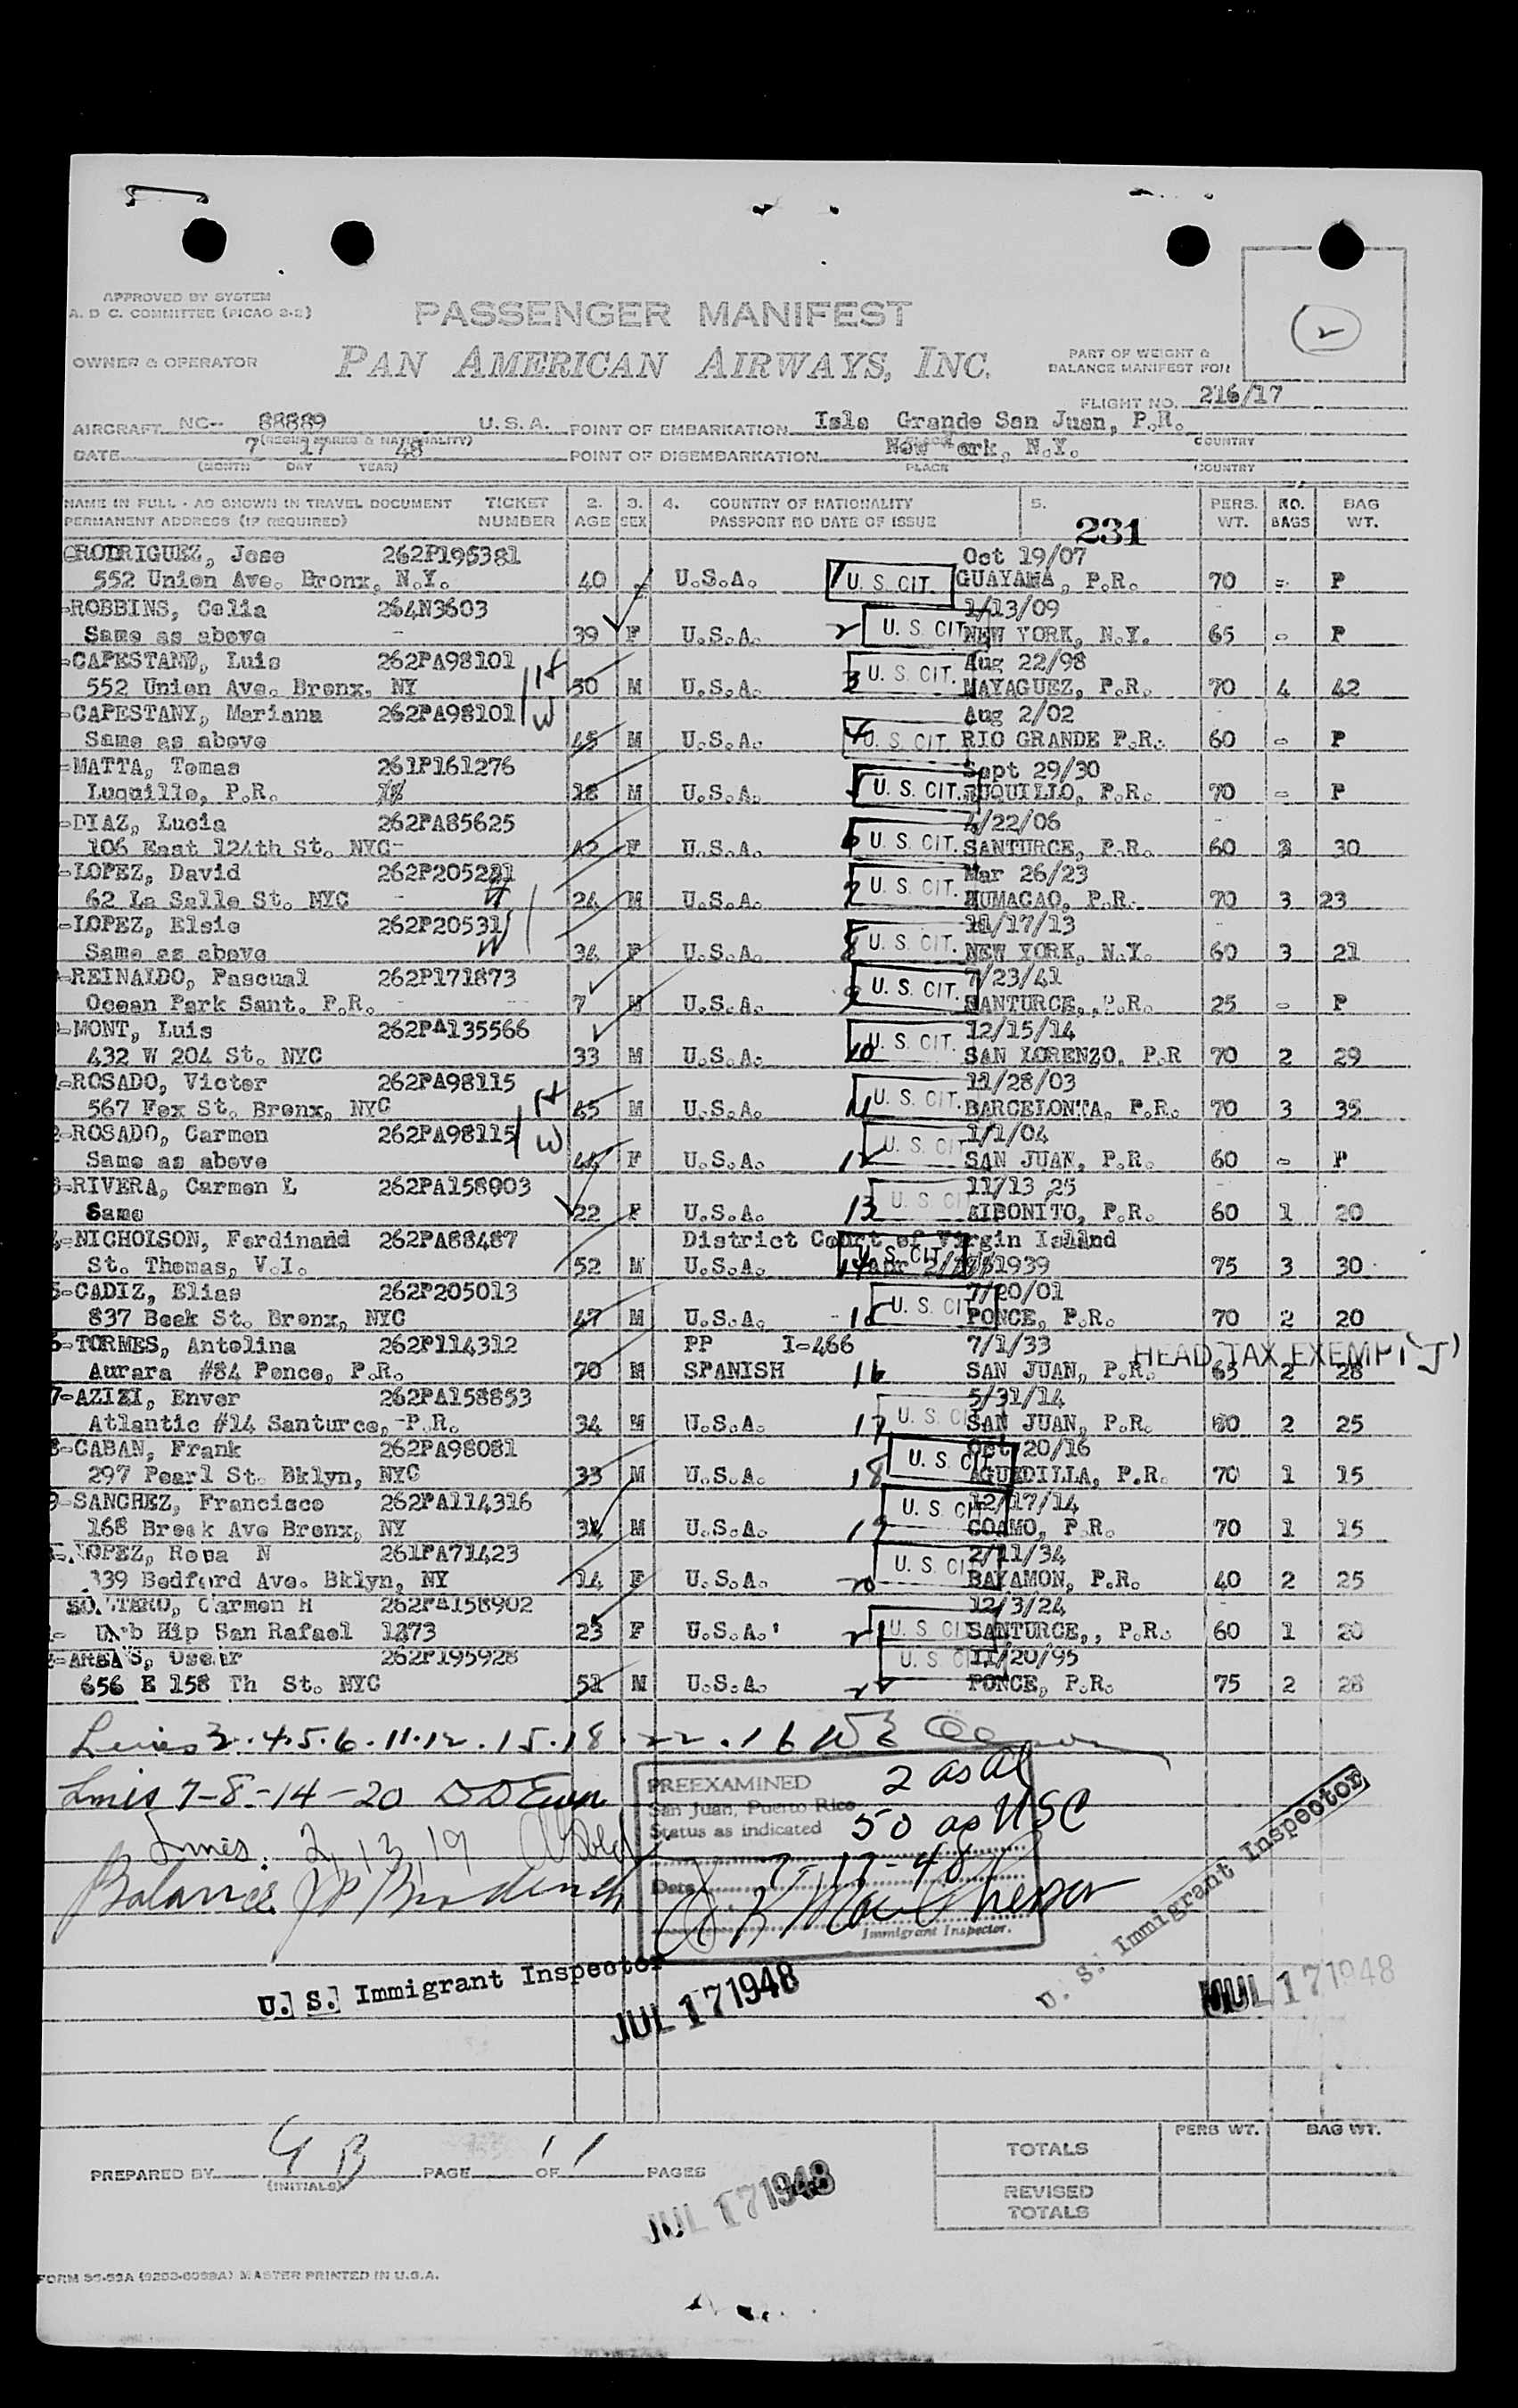 APPROVED BY SYSTEM
A. D C. COMMITTEE (PICAO 2-2)
PASSENGER MANIFEST
OWNER & OPERATOR
PAN AMERICAN AIRWAYS, INC.
PART OF WEIGHT &
BALANCE MANIFEST FOR
FLIGHT NO. 216/17
AIRCRAFT NC-- 88889 U.S.A. POINT OF EMBARKATION Isla Grande San Juan, P.R.
(REGIS MARKS & NATIONALITY) COUNTRY
DATE 7 17 48 POINT OF DISEMBARKATION New ork, N.Y.
(MONTH DAY YEAR) PLACE COUNTRY
NAME IN FULL - AS SHOWN IN TRAVEL DOCUMENT TICKET 2. 3. 4. COUNTRY OF NATIONALITY 5. PERS. NO. BAG
PERMANENT ADDRESS (IF REQUIRED) NUMBER AGE SEX PASSPORT NO DATE OF ISSUE 231 WT. BAGS WT.
RODRIGUEZ, Jose 262P195381 Oct 19/07
552 Union Ave. Bronx, N.Y. 40 U.S.A. 1 U. S. CIT. GUAYAMA, P.R. 70 - P
-ROBBINS, Celia 264N3603 1/13/09
Same as above - 39 F U.S.A. 2 U. S. CIT. NEW YORK, N.Y. 65 - P
-CAPESTANY, Luis 262PA98101 H Aug 22/98
552 Union Ave. Bronx, NY 50 M U.S.A. 3 U. S. CIT. MAYAGUEZ, P.R. 70 4 42
-CAPESTANY, Mariana 262PA98101 W Aug 2/02
Same as above 45 M U.S.A. 4 U. S. CIT. RIO GRANDE P.R. 60 - P
-MATTA, Tomas 261P161276 Sept 29/30
Luquillo, P.R. 18 M U.S.A. 5 U. S. CIT. LUQUILLO, P.R. 70 - P
-DIAZ, Lucia 262PA85625 4/22/06
106 East 124th St. NYC- 42 F U.S.A. 6 U. S. CIT. SANTURCE, P.R. 60 3 30
-LOPEZ, David 262P205221 Mar 26/23
62 La Salle St. NYC - H 24 M U.S.A. 7 U. S. CIT. HUMACAO, P.R. 70 3 23
-LOPEZ, Elsie 262P20531 11/17/13
Same as above W 34 F U.S.A. 8 U. S. CIT. NEW YORK, N.Y. 60 3 21
-REINALDO, Pascual 262P171873 7/23/41
Ocean Park Sant. P.R. 7 M U.S.A. 9 U. S. CIT. SANTURCE,,P.R. 25 - P
-MONT, Luis 262PA135566 12/15/14
432 W 204 St. NYC 33 M U.S.A. 10 U. S. CIT. SAN LORENZO. P.R 70 2 29
-ROSADO, Victor 262PA98115 H 11/28/03
567 Fox St. Bronx, NYC 45 M U.S.A. 11 U. S. CIT. BARCELONTA, P.R. 70 3 35
-ROSADO, Carmen 262PA98115 W 1/1/04
Same as above 44 F U.S.A. 12 U. S. CIT SAN JUAN, P.R. 60 - P
-RIVERA, Carmen L 262PA158903 11/13 25
Same 22 F U.S.A. 13 U. S. CI AIBONITO, P.R. 60 1 20
-NICHOLSON, Ferdinand 262PA88487 District Court of Virgin Island
St. Thomas, V.I. 52 M U.S.A. 14 U. S. CIT. 1939 75 3 30
-CADIZ, Elias 262P205013 7/20/01
837 Beek St. Bronx, NYC 47 M U.S.A. 15 U. S. CIT PONCE, P.R. 70 2 20
-TORMES, Antolina 262P114312 PP I-466 7/1/33 HEAD TAX EXEMPT
Aurara #84 Ponce, P.R. 70 M SPANISH 16 SAN JUAN, P.R. 65 2 28
7-AZIZI, Enver 262PA158853 5/31/14
Atlantic #14 Santurce,-P.R. 34 M U.S.A. 17 U. S. CI SAN JUAN, P.R. 80 2 25
-CABAN, Frank 262PA98081 Oct 20/16
297 Pearl St. Bklyn, NYC 33 M U.S.A. 18 U. S. CIT AGUADILLA, P.R. 70 1 15
9-SANCHEZ, Francisco 262PA114316 12/17/14
168 Brook Ave Bronx, NY 34 M U.S.A. 19 U. S. CIT COAMO, P.R. 70 1 15
LOPEZ, Rosa N 261PA71423 2/11/34
339 Bedford Ave. Bklyn, NY 14 F U.S.A. 20 U. S. CI BAYAMON, P.R. 40 2 25
Carmen H 262PA158902 12/3/24
Hip San Rafael 1273 23 F U.S.A. 21 U. S. CI SANTURCE,, P.R. 60 1 20
262P195928 11/20/95
656 E 158 Th St. NYC 51 M U.S.A. 22 U. S. CI PONCE, P.R. 75 2 28
Lines 3.4.5.6.11.12.15.18.22.16
Lines 7-8-14-20
Lines. 2, 13, 19
Balance
PREEXAMINED 2 as al
San Juan, Puerto Rico
Status as indicated 50 as USC
Date 7-17-48
Immigrant Inspector.
U. S. Immigrant Inspector
U. S. Immigrant Inspector
JUL 17 1948
JUL 17 1948
PREPARED BY G B PAGE OF PAGES
(INITIALS)
TOTALS PERS WT. BAG WT.
REVISED
TOTALS
JUL 17 1948
FORM MASTER PRINTED IN U.S.A.